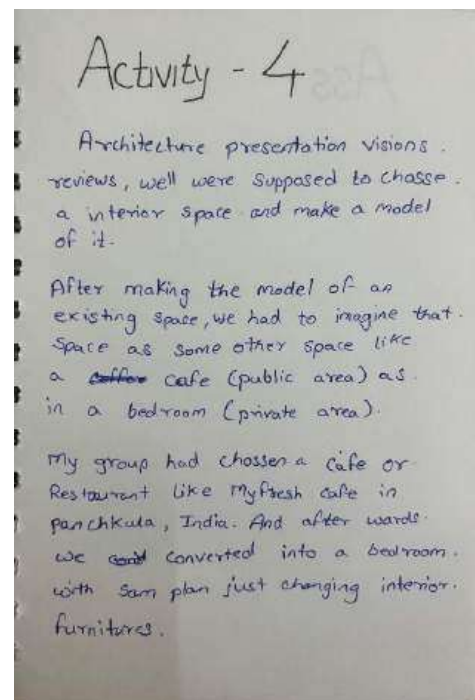 Activity - 4
Architecture presentation visions.
reviews, well were supposed to chasse.
a interior space and make a model
of it.
After making the model of an
existing space, we had to imagine that.
Space as some other space like
a cafe (public area) as.
in a bedroom (private area).
My group had chossen a cafe or
Restaurant like Myfresh cafe in
panchkula, India. And after wards.
we converted into a bedroom.
with Sam plan just changing interior.
furnitures.